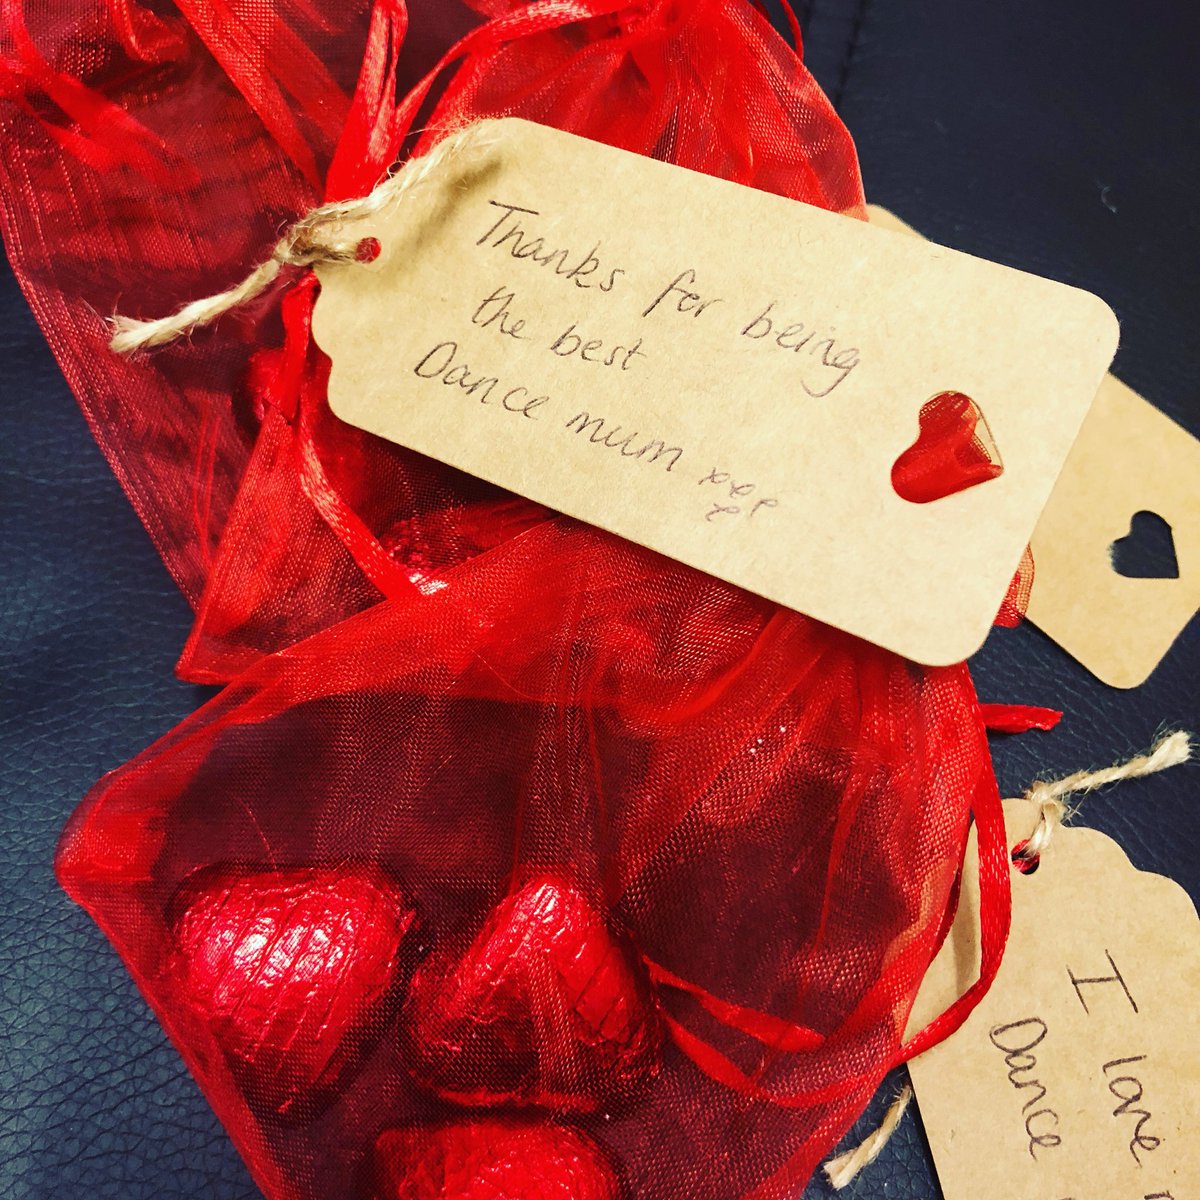 Thanks for being
the best
Dance mum
I love
Dance